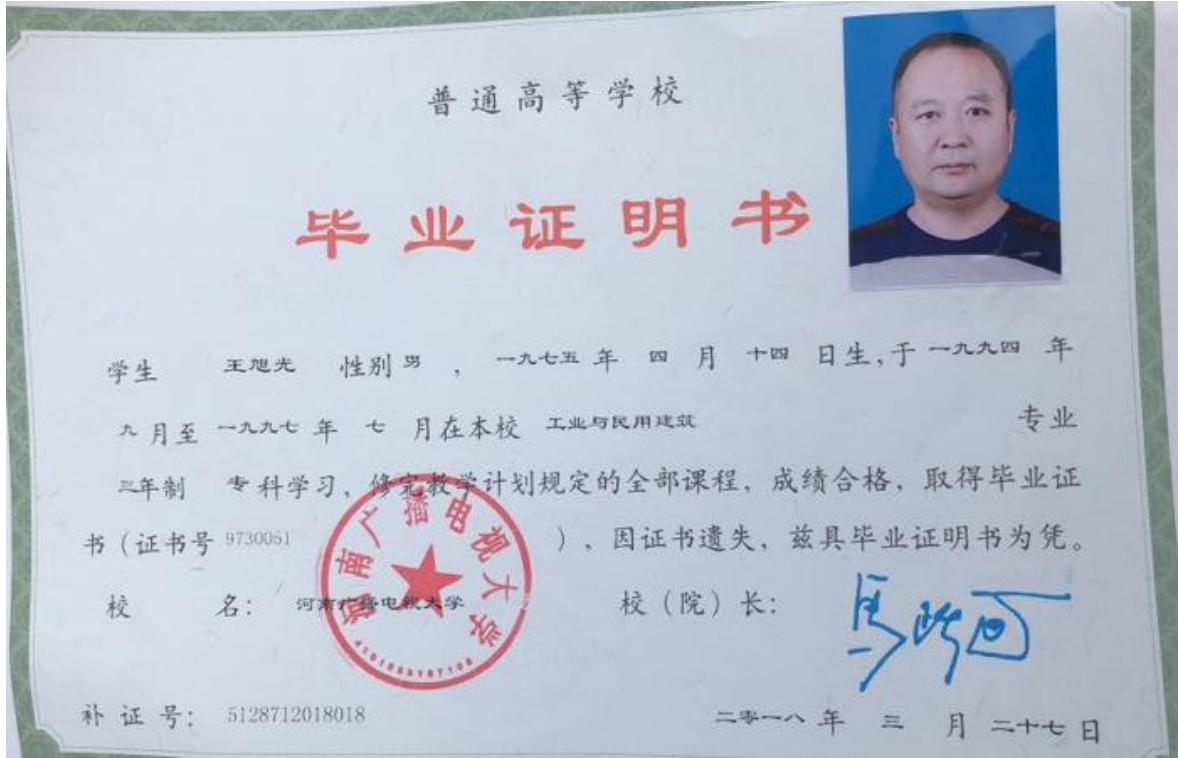 普通高等学校
毕业证明书
学生 王旭光 性别 男 ， 一九七五 年 四 月 十四 日生，于 一九九四 年
九 月至 一九九七 年 七 月在本校 工业与民用建筑 专业
三年制 专科学习，修完教学计划规定的全部课程，成绩合格，取得毕业证
书（证书号 9730051 ），因证书遗失，兹具毕业证明书为凭。
校 名： 河南广播电视大学 校（院）长：
河南广播电视大学
补 证 号： 5128712018018 二零一八 年 三 月 二十七 日